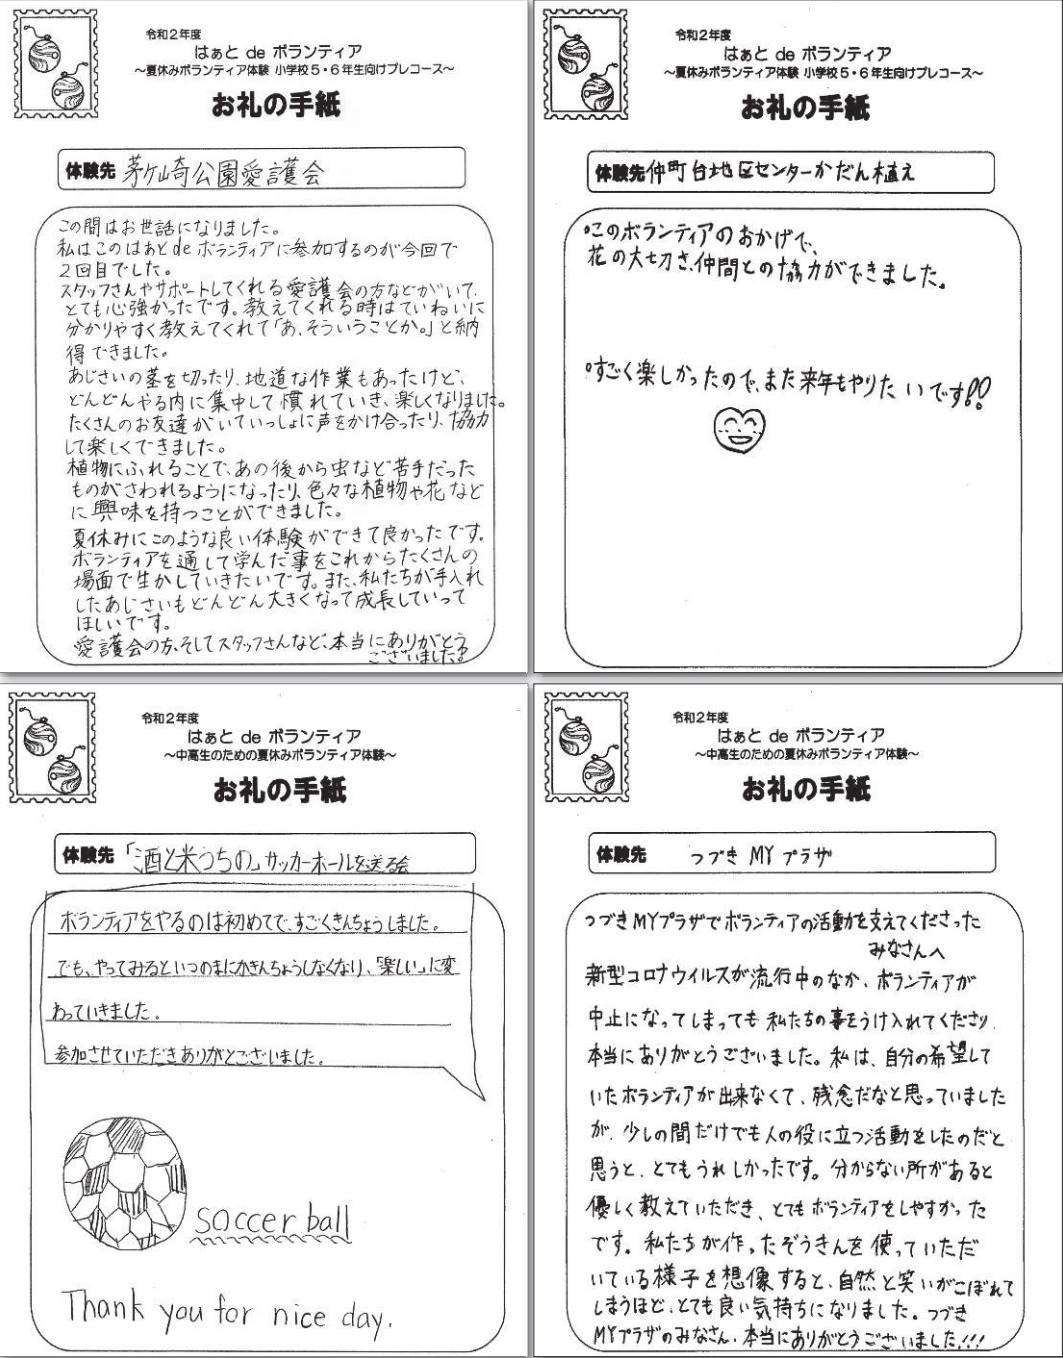 令和２年度
はぁと de ボランティア
～夏休みボランティア体験 小学校５・６年生向けプレコース～
お礼の手紙
体験先 茅ケ崎公園愛護会
この間はお世話になりました。
私はこのはあとdeボランティアに参加するのが今回で
２回目でした。
スタッフさんやサポートしてくれる愛護会の方などがいて、
とても心強かったです。教えてくれる時はていねいに
分かりやすく教えてくれて「あ、そういうことか。」と納
得できました。
あじさいの茎を切ったり、地道な作業もあったけど、
どんどんやる内に集中して慣れていき、楽しくなりました。
たくさんのお友達がいていっしょに声をかけ合ったり、協力
して楽しくできました。
植物にふれることで、あの後から虫など苦手だった
ものがさわれるようになったり、色々な植物や花など
に興味を持つことができました。
夏休みにこのような良い体験ができて良かったです。
ボランティアを通して学んだ事をこれからたくさんの
場面で生かしていきたいです。また、私たちが手入れ
したあじさいもどんどん大きくなって成長していって
ほしいです。
愛護会の方、そしてスタッフさんなど、本当にありがとう
ございました。
令和２年度
はぁと de ボランティア
～夏休みボランティア体験 小学校５・６年生向けプレコース～
お礼の手紙
体験先 仲町台地区センターかだん植え
・このボランティアのおかげで、
花の大切さ、仲間との協力ができました。
・すごく楽しかったので、また来年もやりたいです!!
令和２年度
はぁと de ボランティア
～中高生のための夏休みボランティア体験～
お礼の手紙
体験先 「酒と米うちの」サッカーボールを送る会
ボランティアをやるのは初めてで、すごくきんちょうしました。
でも、やってみるといつのまにかきんちょうしなくなり、「楽しい」に変
わっていきました。
参加させていただきありがとございました。
soccer ball
Thank you for nice day.
令和２年度
はぁと de ボランティア
～中高生のための夏休みボランティア体験～
お礼の手紙
体験先 つづき MY プラザ
つづきMYプラザでボランティアの活動を支えてくださった
みなさんへ
新型コロナウイルスが流行中のなか、ボランティアが
中止になってしまっても私たちの事をうけ入れてくださり、
本当にありがとうございました。私は、自分の希望して
いたボランティアが出来なくて、残念だなと思っていました
が、少しの間だけでも人の役に立つ活動をしたのだと
思うと、とてもうれしかったです。分からない所があると
優しく教えていただき、とてもボランティアをしやすかった
です。私たちが作ったぞうきんを使っていただ
いている様子を想像すると、自然と笑いがこぼれて
しまうほど、とても良い気持ちになりました。つづき
MYプラザのみなさん、本当にありがとうございました!!!